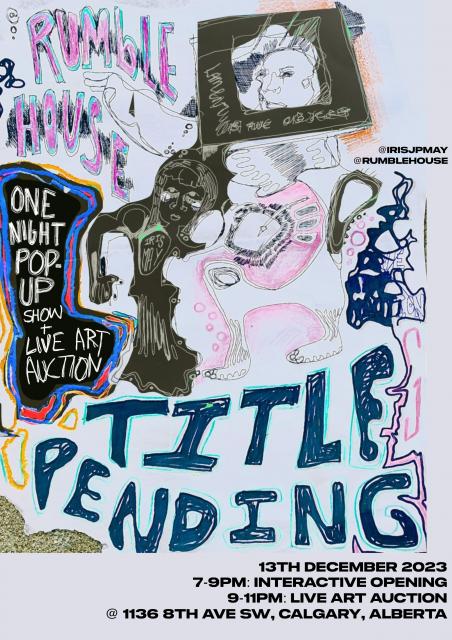 RUMBLE
HOUSE
@IRISJPMAY
@RUMBLEHOUSE
ONE
NIGHT
POP-
UP
SHOW
+
LIVE ART
AUCTION
TITLE
PENDING
13TH DECEMBER 2023
7-9PM: INTERACTIVE OPENING
9-11PM: LIVE ART AUCTION
@ 1136 8TH AVE SW, CALGARY, ALBERTA